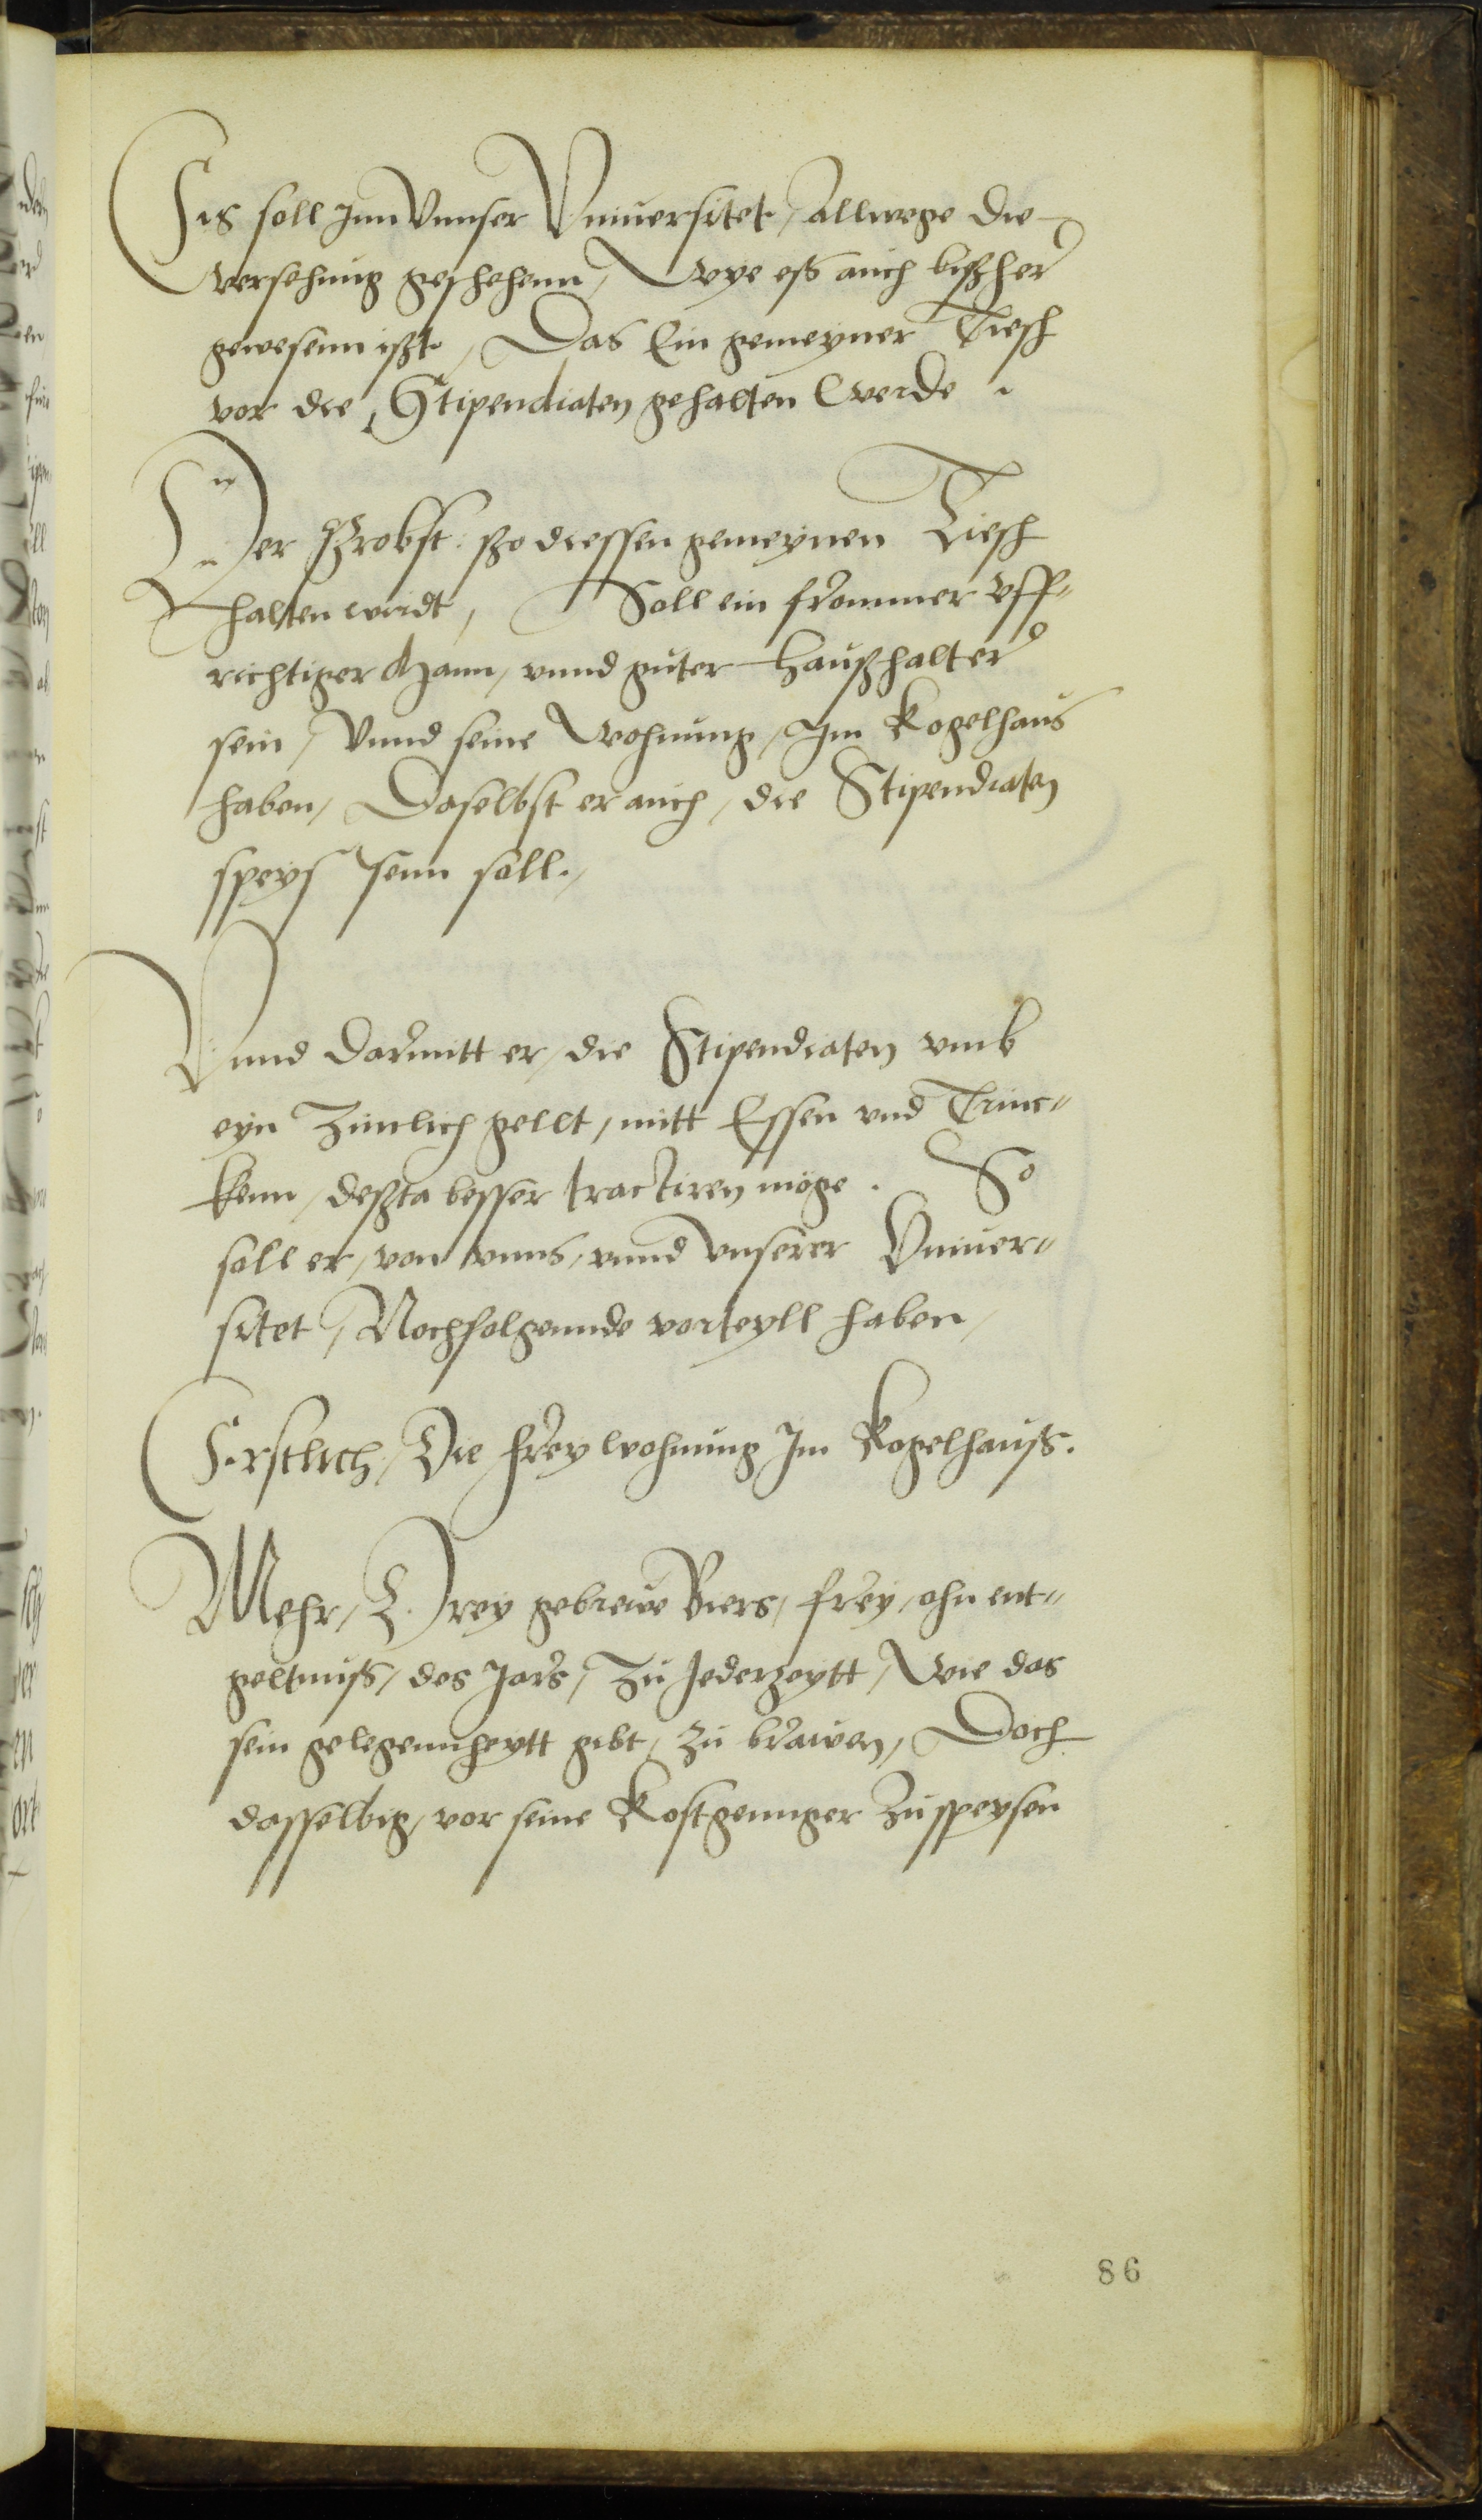 Es soll Inn Vnnser Vniuersitet, Allwege die
versehung geschehenn, Wye eß auch bißher
gewesenn ißt, Das Ein gemeyner Tiesch
vor die Stipendiaten gehalten werde.
Der Probst: ßo diessen gemeynen Tiesch
halten wirdt, Soll ein frommer vff"
richtiger Mann, vnnd guter Haußhalter
sein, Vnnd seine Wohnung, Im Kogelhaus
haben, Daselbst er auch, die Stipendiaten
speyssenn soll.
Vnnd darmitt er, die Stipendiaten vmb
eyn Zimlich gellt, mitt Essen vnd Trinc"
kenn, deßta besser tractiren möge. So
soll er, von vnns, vnnd vnserer Vniuer"
sitet, Nochfolgennde vorteyll haben,
Erstlich, Die frey wohnung Im Kogelhauß.
Mehr, Drey gebrewe Biers, frey, ohn ent"
geltnuß, des Jars, Zu Jederzeytt, Wie das
sein gelegennheytt gibt, zu brawen, Doch
dasselbig, vor seine Kostgennger Zu speysen
86